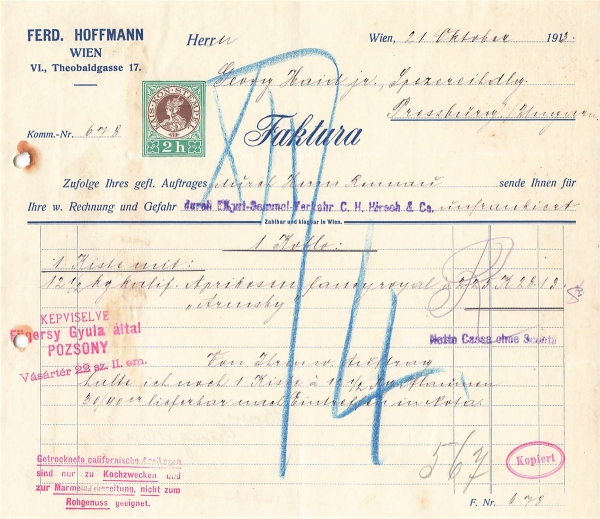 FERD. HOFFMANN
WIEN
VI., Theobaldgasse 17.
Herrn
Wien, 21 Oktober 1913.
Georg Haid jr., Spezereihdlg.
Pressburg, Ungarn
2 h
Komm.-Nr. 678
Faktura
Zufolge Ihres gefl. Auftrages durch Herrn sende Ihnen für
Ihre w. Rechnung und Gefahr durch Eilgut-Sammel-Verkehr C. H. Hirsch & Co. unfrankiert
Zahlbar und klagbar in Wien.
1 Kollo:
1 Kiste mit:
12 1/2 Kg Kalif. Aprikosen fancy royal
"Armsby"
KEPVISELVE
Gyula által
POZSONY
Vásártér 22 sz. II. em.
Netto Cassa ohne Sconto
Von Ihrem w. Auftrag
halte ich noch 1 Kiste à 12 1/2 Kg Pflaumen
30/40 er lieferbar nach Eintreffen in Nota.
14
567
Kopiert
Getrocknete californische Aprikosen
sind nur zu Kochzwecken und
zur Marmeladbereitung, nicht zum
Rohgenuss geeignet.
F. Nr. 678